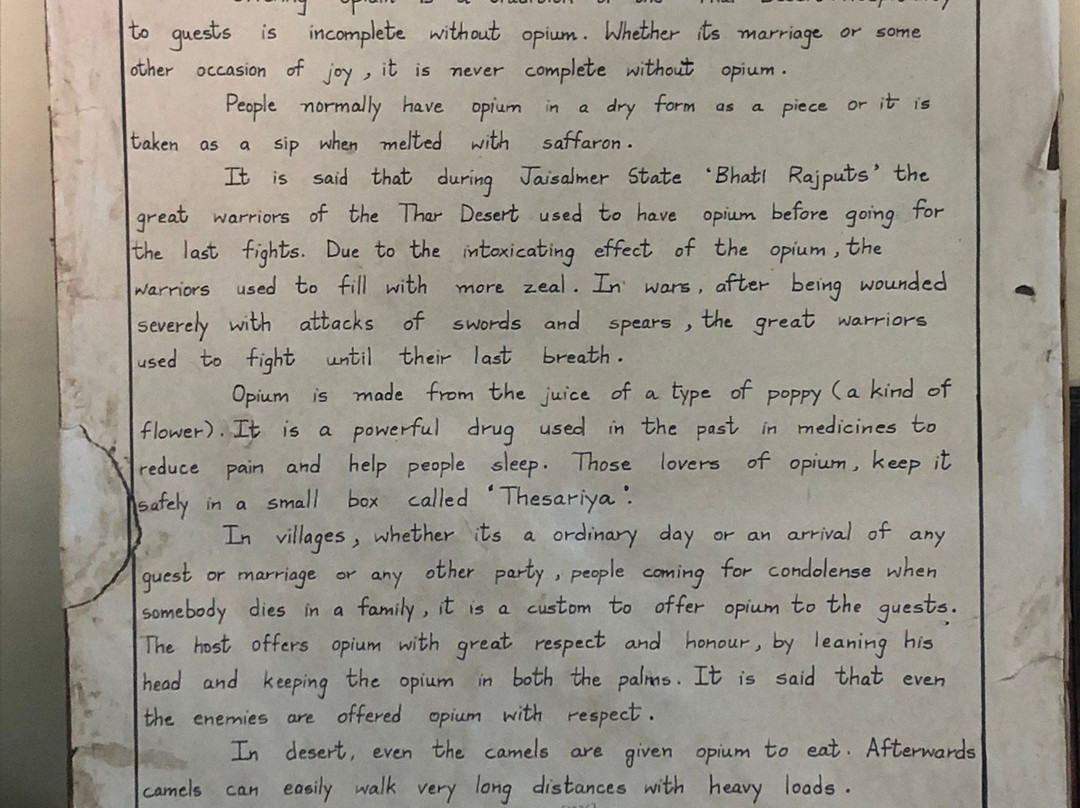 opium is a tradition of the Thar
to guests is incomplete without opium. Whether its marriage or some
other occasion of joy, it is never complete without opium.
People normally have opium in a dry form as a piece or it is
taken as a sip when melted with saffaron.
It is said that during Jaisalmer State 'Bhati Rajputs' the
great warriors of the Thar Desert used to have opium before going for
the last fights. Due to the intoxicating effect of the opium, the
warriors used to fill with more zeal. In wars, after being wounded
severely with attacks of swords and spears, the great warriors
used to fight until their last breath.
Opium is made from the juice of a type of poppy (a kind of
flower). It is a powerful drug used in the past in medicines to
reduce pain and help people sleep. Those lovers of opium, keep it
safely in a small box called 'Thesariya'.
In villages, whether its a ordinary day or an arrival of any
guest or marriage or any other party, people coming for condolense when
somebody dies in a family, it is a custom to offer opium to the guests.
The host offers opium with great respect and honour, by leaning his
head and keeping the opium in both the palms. It is said that even
the enemies are offered opium with respect.
In desert, even the camels are given opium to eat. Afterwards
camels can easily walk very long distances with heavy loads.